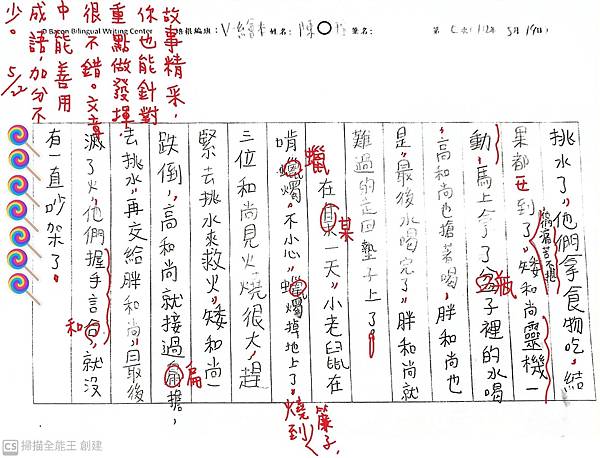 © Bacon Bilingual Writing Center 班級編號：V-繪本 姓名：陳○ 筆名： 第 次(112年 5月19日)
挑水了，他們拿食物吃，結
果都 到了，矮和尚靈機一
噎
痛苦不堪
動，馬上拿了 子裡的水喝
瓶
，高和尚也搶著喝，胖和尚也
是，最後水喝完了，胖和尚就
難過的走回墊子上了。
在 一天，小老鼠在
某
啃 燭，不小心， 燭掉地上了，燒到簾子，
蠟
三位和尚見火燒很大，趕
緊去挑水來救火，矮和尚一
跌倒，高和尚就接過 擔，
扁
去挑水，再交給胖和尚，最後
滅了火，他們握手言合，就沒
和
有一直吵架了。
故事精采，
你也能針對
重點做發揮，
很不錯。文章
中能善用
成語，加分不
少。5/22
CS 掃描全能王 創建